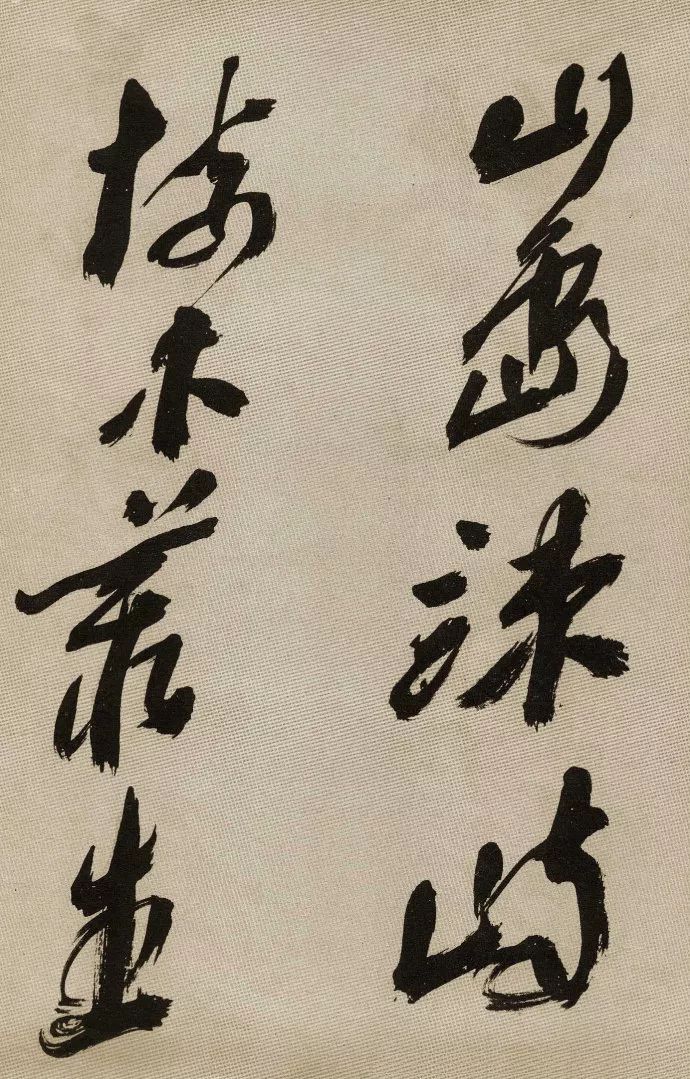 山島竦峙
樹木叢生